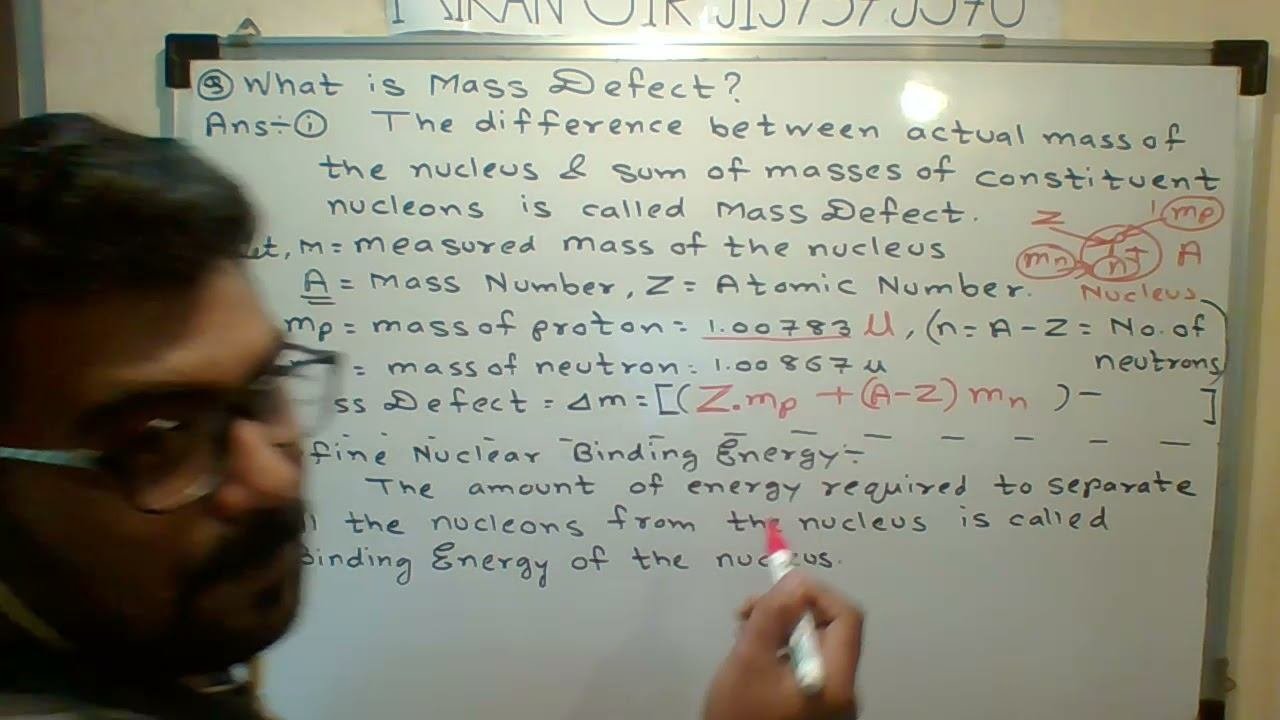 Q What is Mass Defect?
Ans÷ ① The difference between actual mass of
the nucleus & sum of masses of constituent
nucleons is called Mass Defect.
M = measured mass of the nucleus
A = Mass Number, Z = Atomic Number.
mp = mass of proton = 1.00783 u, (n = A - Z = No. of
neutrons)
= mass of neutron = 1.00867 u
Defect = Δm = [(Z.mp + (A-Z) mn ) - ]
Z
mp
mn
n
+
A
Nucleus
Nuclear Binding Energy÷
The amount of energy required to separate
the nucleons from the nucleus is called
Binding Energy of the nucleus.